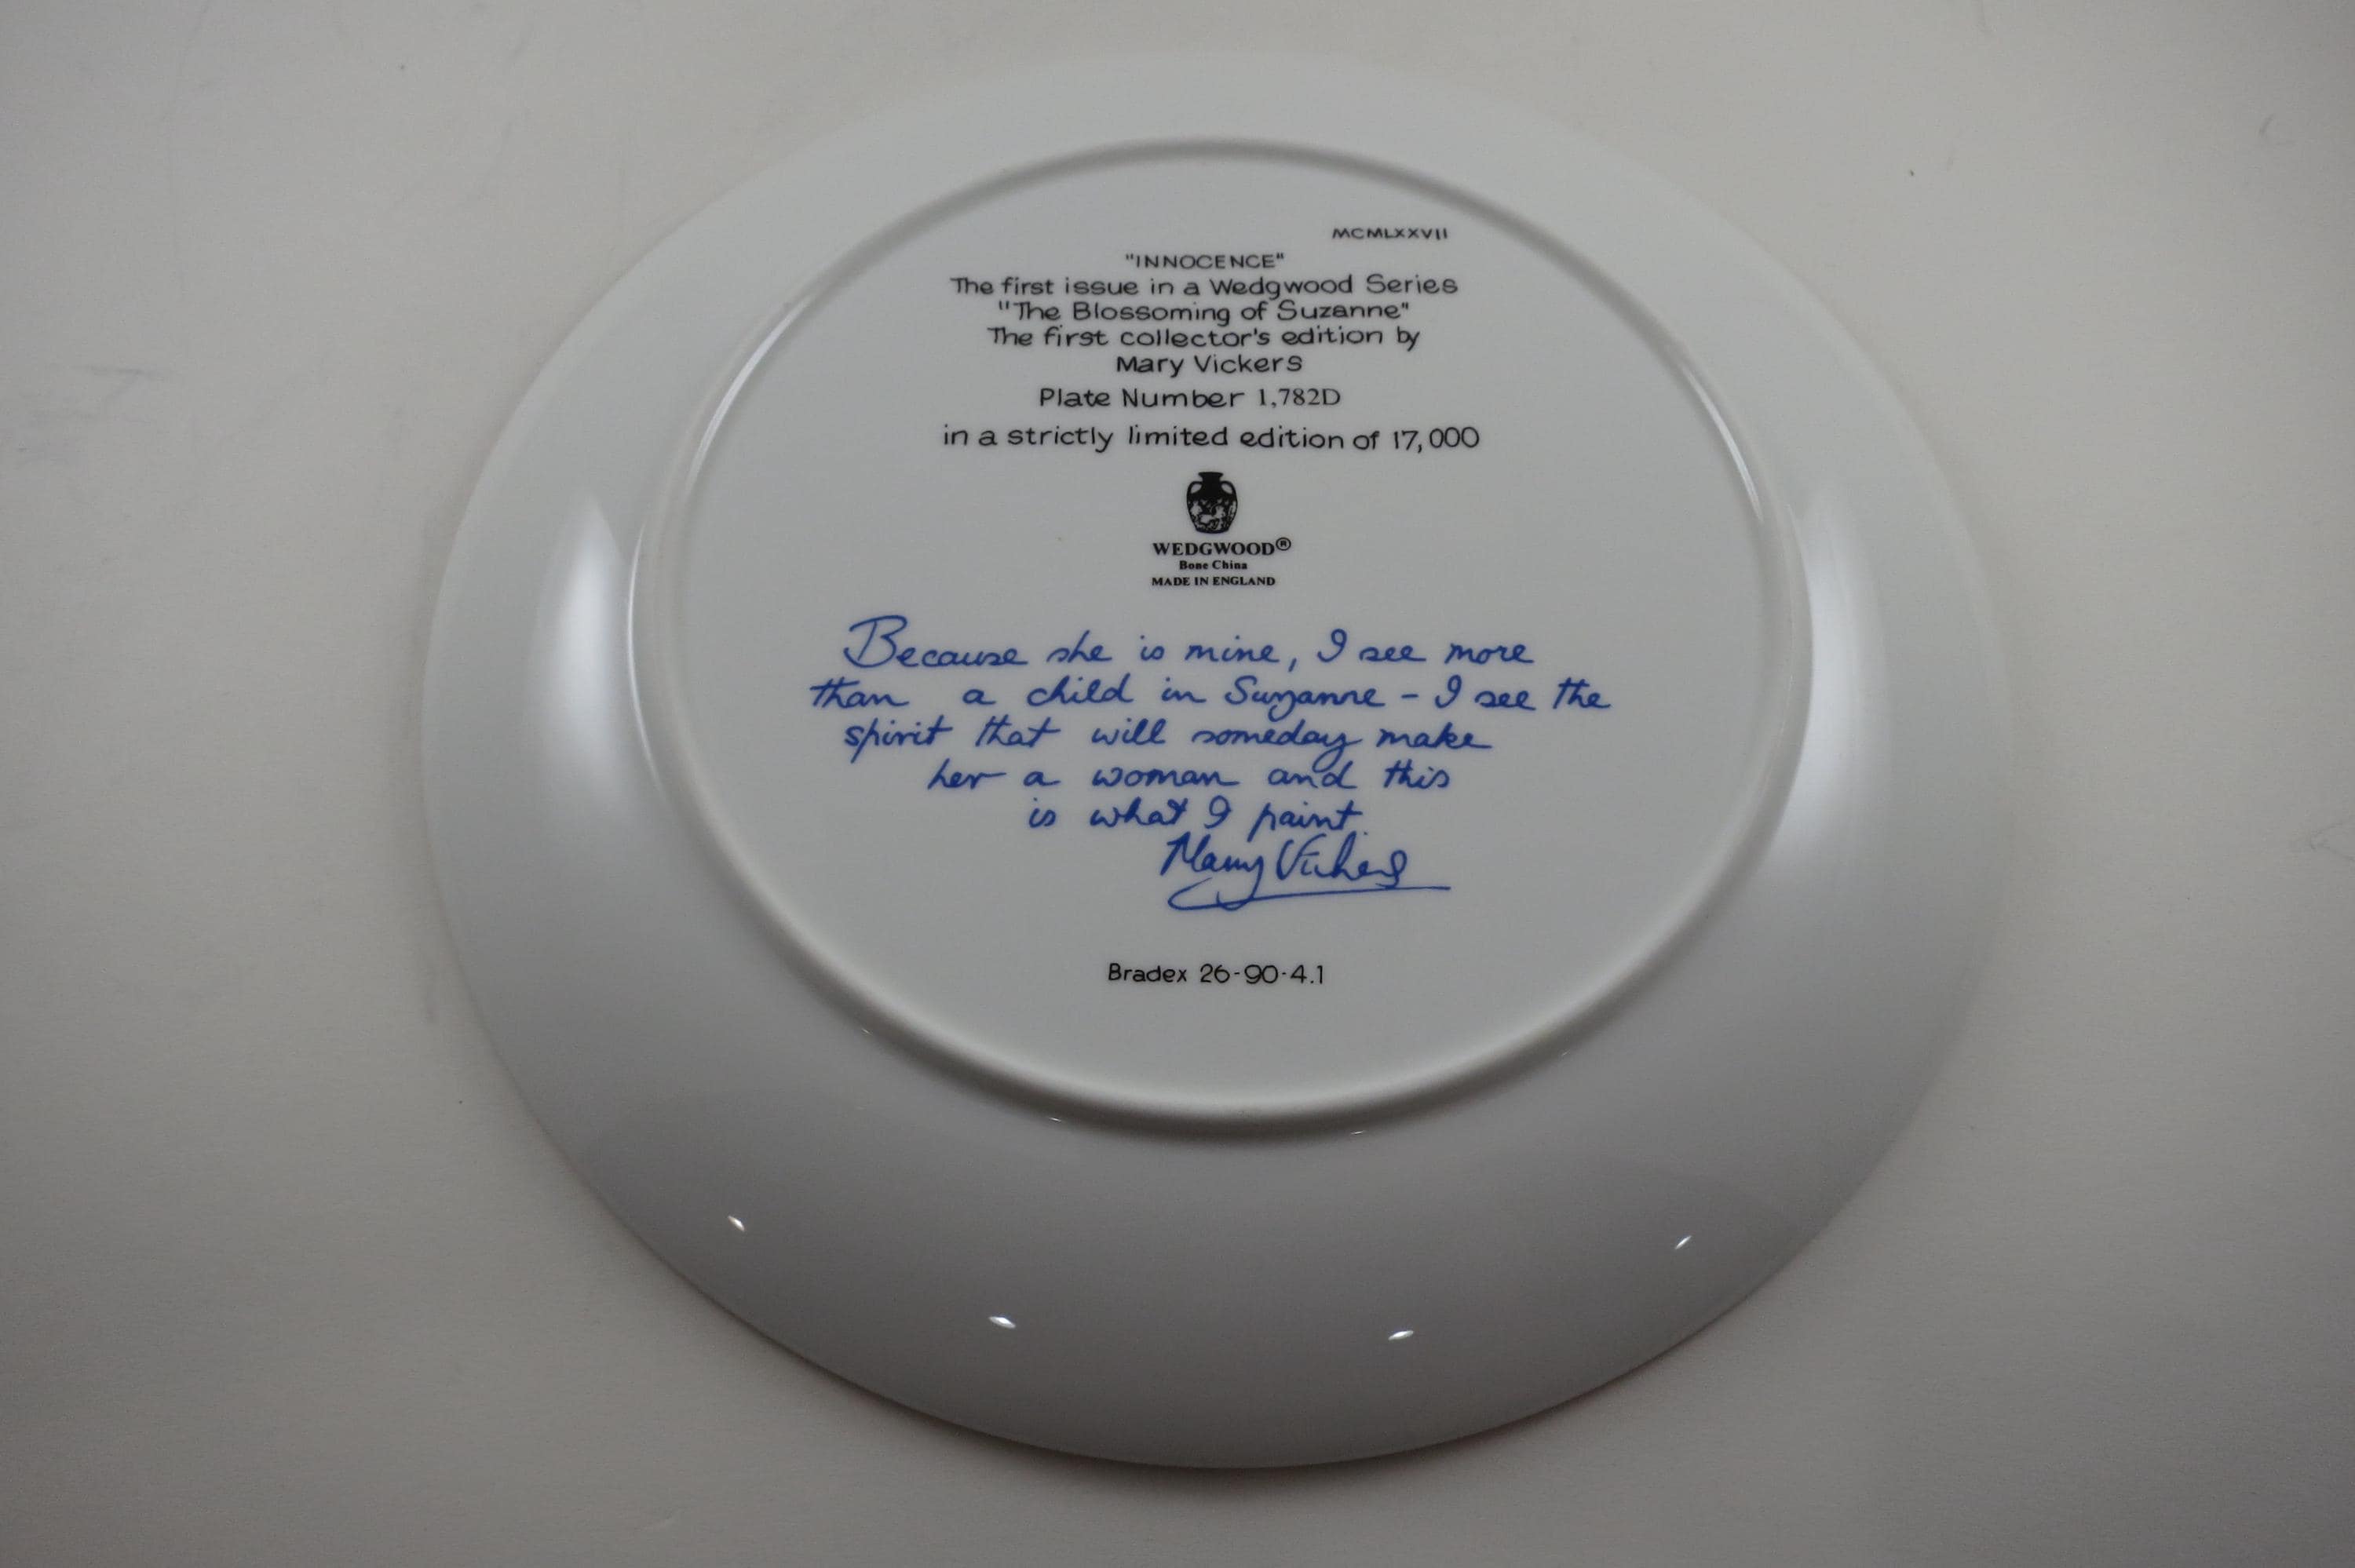 MCMLXXVII
"INNOCENCE"
The first issue in a Wedgwood Series
"The Blossoming of Suzanne"
The first collector's edition by
Mary Vickers
Plate Number 1,782D
in a strictly limited edition of 17,000
WEDGWOOD®
Bone China
MADE IN ENGLAND
Because she is mine, I see more
than a child in Suzanne - I see the
spirit that will someday make
her a woman and this
is what I paint.
Mary Vickers
Bradex 26-90-4.1